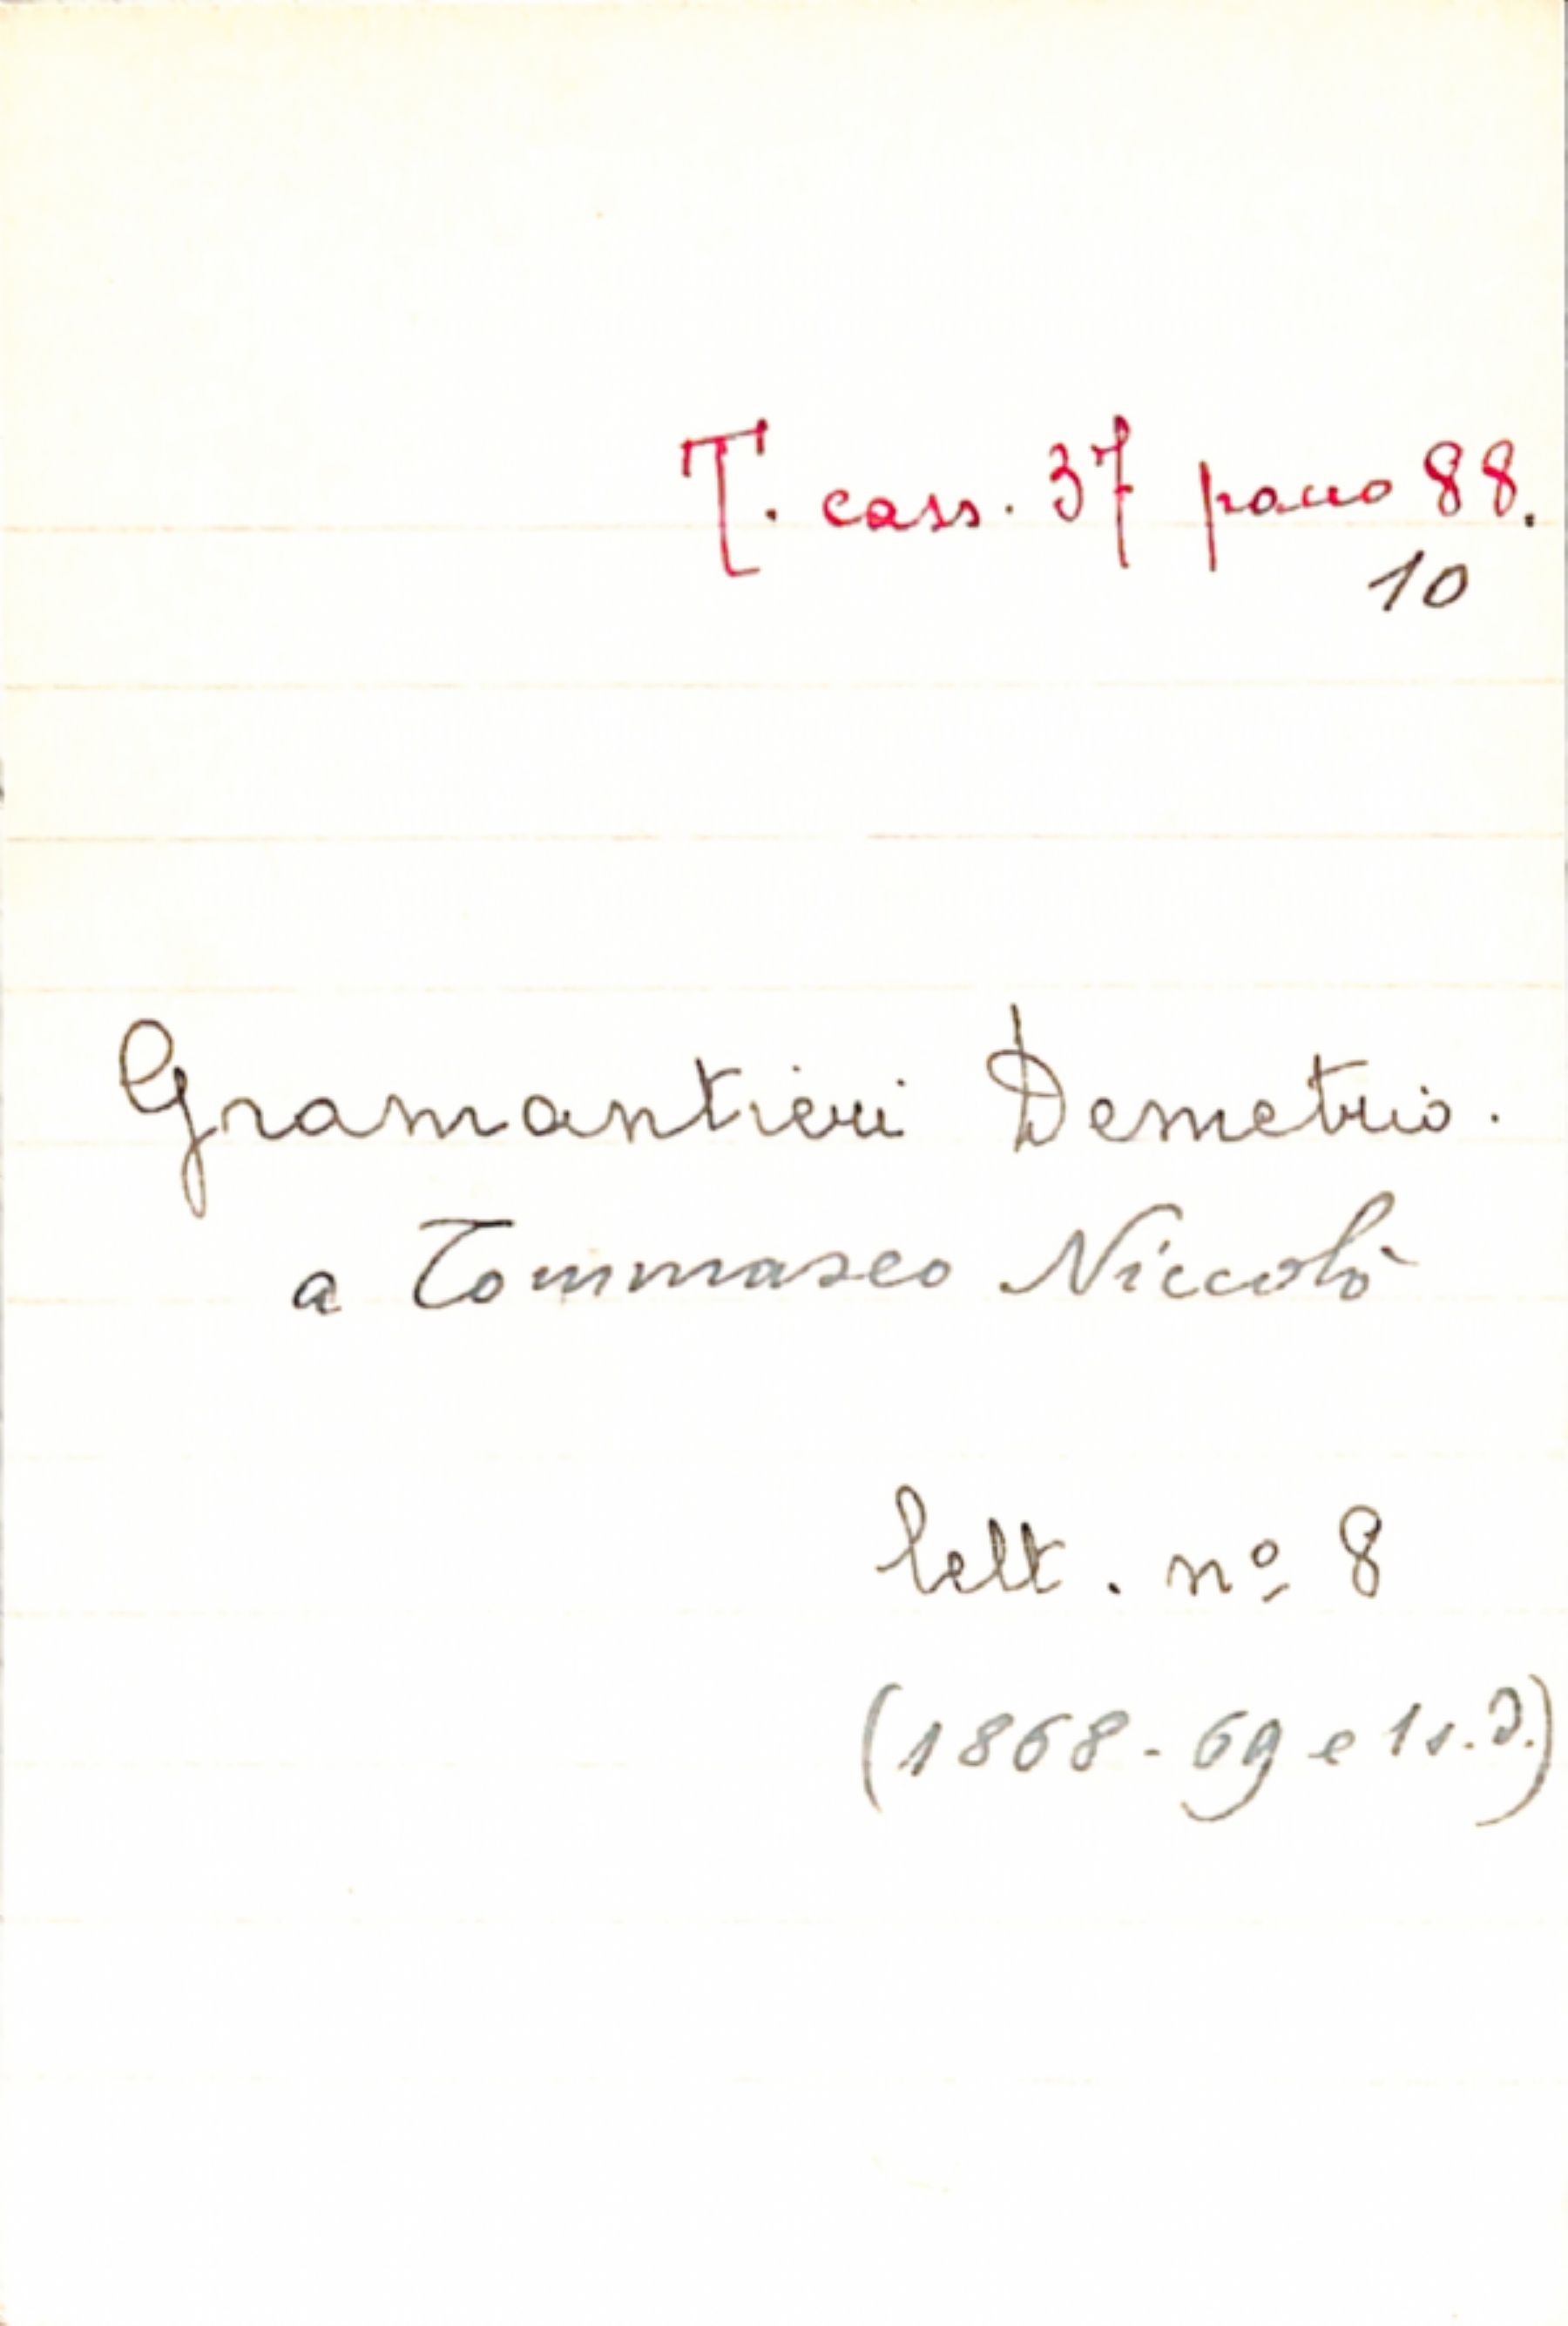 T. cass. 37 pacco 88.
10
Gramantieri Demetrio.
a Tommaseo Niccolò
lett. nº 8
(1868-69 e 1 s.d.)